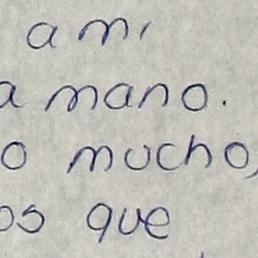 a mi
a mano.
o mucho,
os que